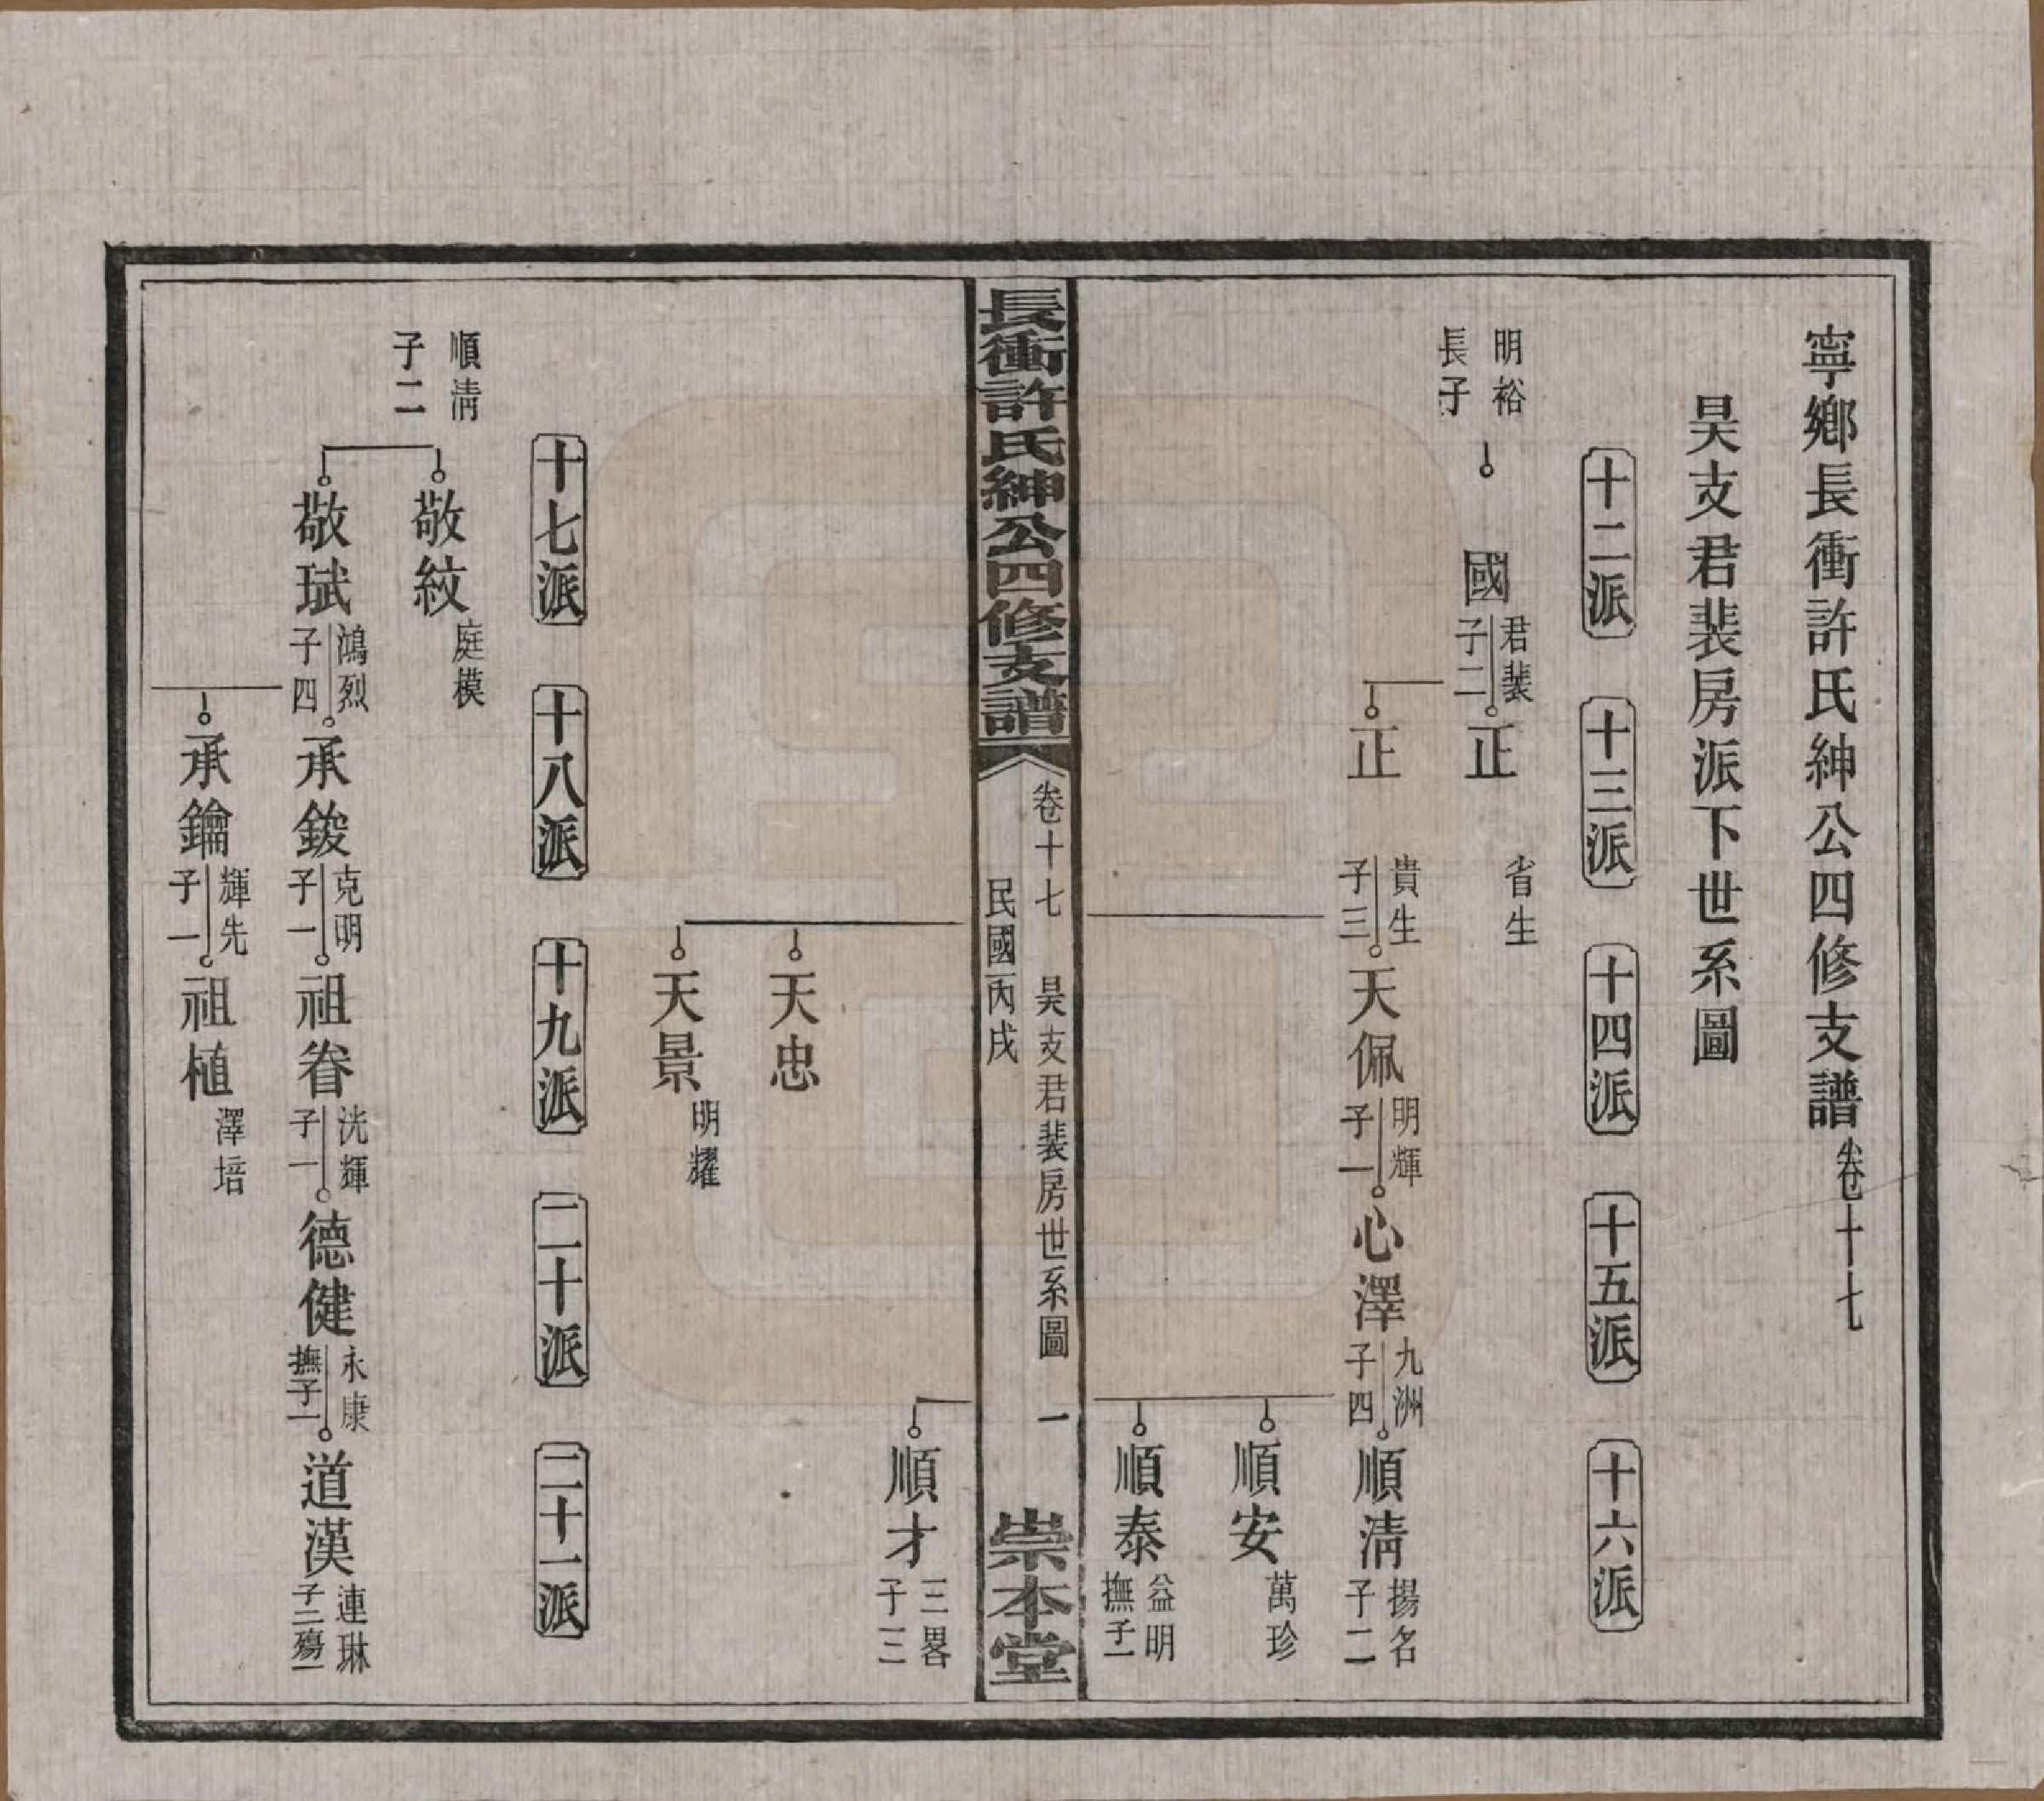 寧鄉長衝許氏紳公四修支譜卷十七
昊支君裴房派下世系圖
十二派
十三派
十四派
十五派
十六派
明裕
長子
國
君裴
子二
正
省生
正
貴生
子三
天佩
明輝
子一
心澤
九洲
子四
順清
揚名
子二
順安
萬珍
順泰
益明
撫子一
長衝許氏紳公四修支譜
卷十七
昊支君裴房世系圖
一
民國丙戌
崇本堂
順才
三畧
子三
天忠
天景
明耀
十七派
十八派
十九派
二十派
二十一派
順清
子二
敬紋
庭模
敬珷
鴻烈
子四
承鋑
克明
子一
祖眷
洸輝
子一
德健
永康
撫子一
道漢
連琳
子二殤一
承鑰
輝先
子一
祖植
澤培